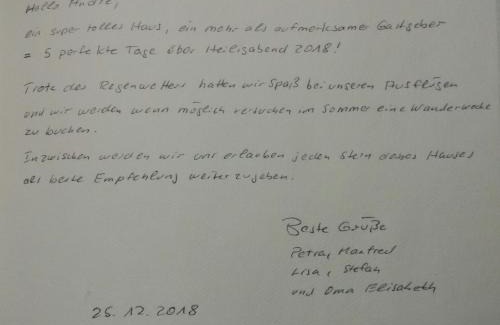 Hallo André,
ein super tolles Haus, ein mehr als aufmerksamer Gastgeber
= 5 perfekte Tage über Heiligabend 2018!
Trotz des Regenwetters hatten wir Spaß bei unseren Ausflügen
und wir werden wenn möglich versuchen im Sommer eine Wanderwoche
zu buchen.
Inzwischen werden wir uns erlauben jeden Stein dieses Hauses
als beste Empfehlung weiterzugeben.
Beste Grüße
Petra, Manfred
Lisa, Stefan
und Oma Elisabeth
25.12.2018